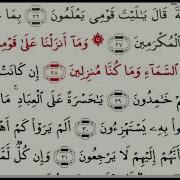 قَالَ يَٰلَيْتَ قَوْمِى يَعْلَمُونَ ٢٦ بِمَا
ٱلْمُكْرَمِينَ ٢٧ ۞ وَمَآ أَنزَلْنَا عَلَىٰ قَوْمِ
ٱلسَّمَآءِ وَمَا كُنَّا مُنزِلِينَ ٢٨ إِن كَانَتْ
خَٰمِدُونَ ٢٩ يَٰحَسْرَةً عَلَى ٱلْعِبَادِ مَا
بِهِۦ يَسْتَهْزِءُونَ ٣٠ أَلَمْ يَرَوْا۟ كَمْ
أَنَّهُمْ إِلَيْهِمْ لَا يَرْجِعُونَ ٣١ وَإِن كُلٌّ لَّمَّا